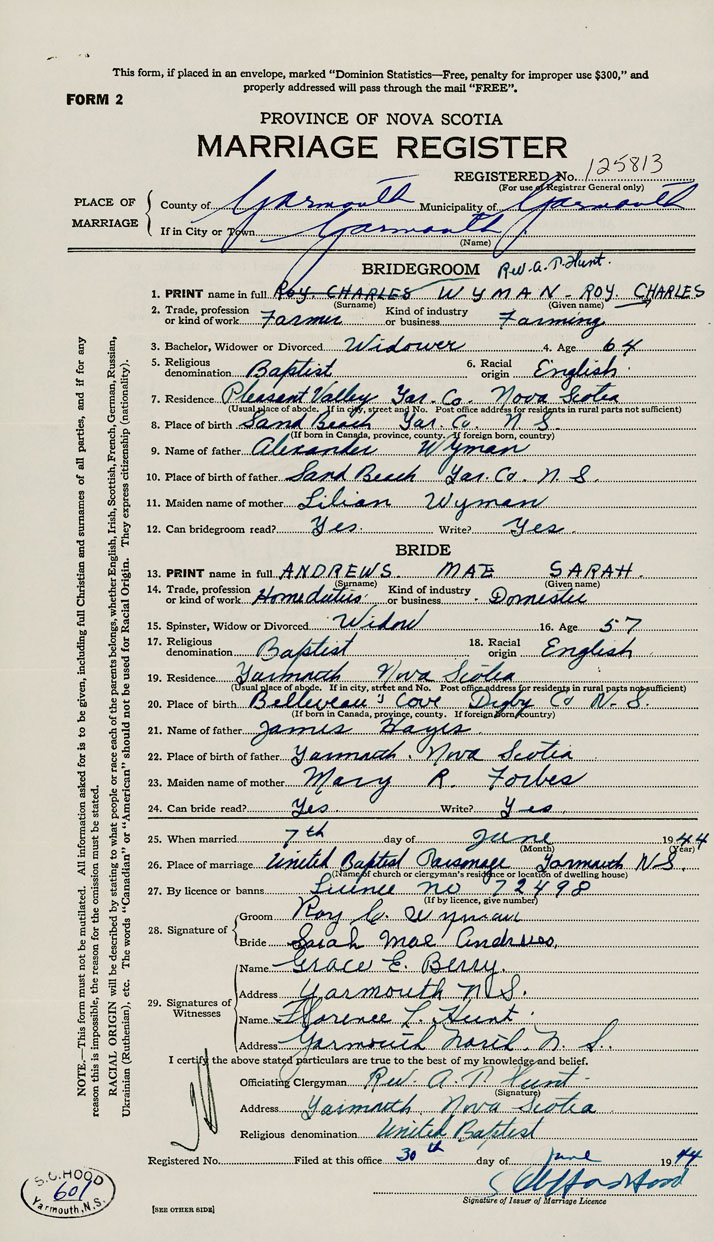 This form, if placed in an envelope, marked "Dominion Statistics—Free, penalty for improper use $300," and
properly addressed will pass through the mail "FREE".
FORM 2
PROVINCE OF NOVA SCOTIA
MARRIAGE REGISTER
REGISTERED No. 125813
(For use of Registrar General only)
PLACE OF MARRIAGE
County of Yarmouth Municipality of Yarmouth
If in City or Town Yarmouth
(Name)
BRIDEGROOM Rev. A. P. Hunt.
1. PRINT name in full ROY. CHARLES WYMAN - ROY. CHARLES
(Surname) (Given name)
2. Trade, profession or kind of work Farmer Kind of industry or business Farming
3. Bachelor, Widower or Divorced Widower 4. Age 64
5. Religious denomination Baptist 6. Racial origin English
7. Residence Pleasant Valley Yar. Co. Nova Scotia
(Usual place of abode. If in city, street and No. Post office address for residents in rural parts not sufficient)
8. Place of birth Sand Beach Yar. Co. N. S.
(If born in Canada, province, county. If foreign born, country)
9. Name of father Alexander Wyman
10. Place of birth of father Sand Beach Yar. Co. N. S.
11. Maiden name of mother Lilian Wyman
12. Can bridegroom read? Yes. Write? Yes.
BRIDE
13. PRINT name in full ANDREWS. MAE SARAH.
(Surname) (Given name)
14. Trade, profession or kind of work Home duties Kind of industry or business Domestic
15. Spinster, Widow or Divorced Widow 16. Age 57
17. Religious denomination Baptist 18. Racial origin English
19. Residence Yarmouth Nova Scotia
(Usual place of abode. If in city, street and No. Post office address for residents in rural parts not sufficient)
20. Place of birth Belleveau's Cove Digby Co N. S.
(If born in Canada, province, county. If foreign born, country)
21. Name of father James Hayes
22. Place of birth of father Yarmouth. Nova Scotia
23. Maiden name of mother Mary R. Forbes
24. Can bride read? Yes Write? Yes
25. When married 7th day of June 1944
(Month) (Year)
26. Place of marriage United Baptist Parsonage Yarmouth N.S.
(Name of church or clergyman's residence or location of dwelling house)
27. By licence or banns Licence no 72498
(If by licence, give number)
28. Signature of
Groom Roy C. Wyman
Bride Sarah Mae Andrews
29. Signatures of Witnesses
Name Grace E. Berry.
Address Yarmouth N.S.
Name Florence L. Hunt
Address Yarmouth North N. S.
I certify the above stated particulars are true to the best of my knowledge and belief.
Officiating Clergyman Rev. A. P. Hunt
(Signature)
Address Yarmouth, Nova Scotia
Religious denomination United Baptist
Registered No. Filed at this office 30th day of June 1944
Signature of Issuer of Marriage Licence
[SEE OTHER SIDE]
S.C. HOOD
601
Yarmouth, N.S.
NOTE.—This form must not be mutilated. All information asked for is to be given, including full Christian and surnames of all parties, and if for any
reason this is impossible, the reason for the omission must be stated.
RACIAL ORIGIN will be described by stating to what people or race each of the parents belongs, whether English, Irish, Scottish, French, German, Russian,
Ukrainian (Ruthenian), etc. The words "Canadian" or "American" should not be used for Racial Origin. They express citizenship (nationality).